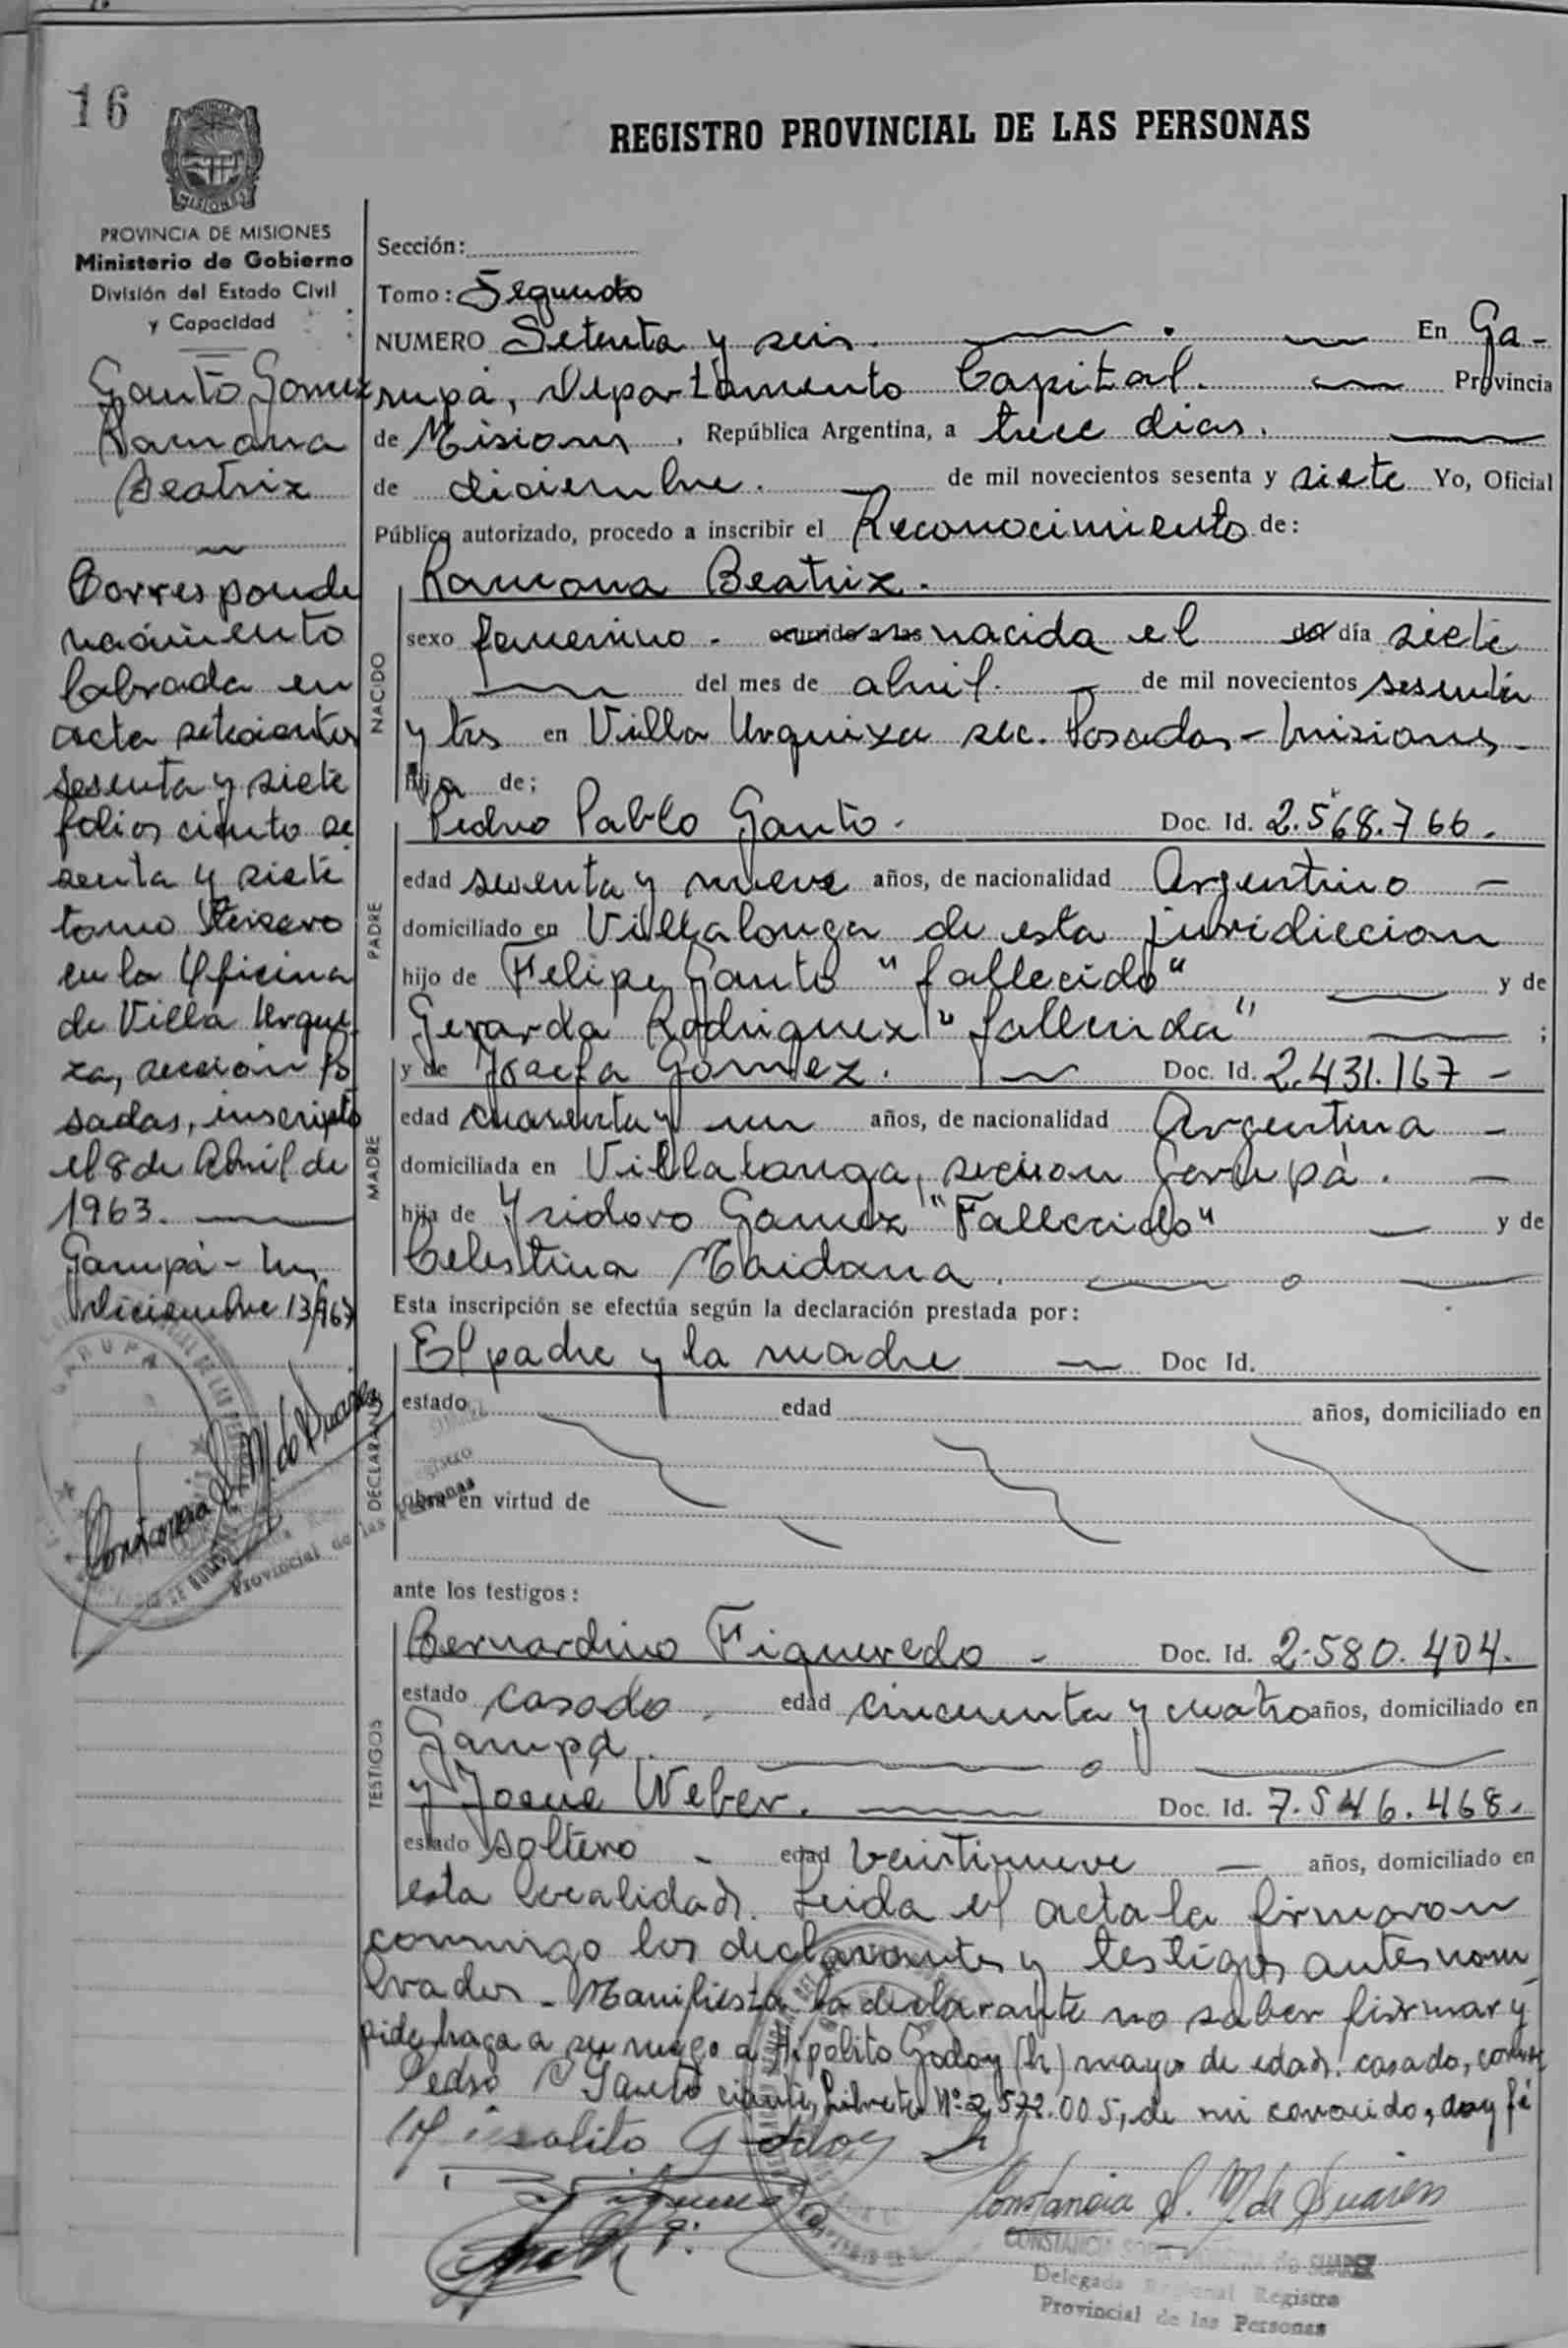 16
REGISTRO PROVINCIAL DE LAS PERSONAS
MISIONES
PROVINCIA DE MISIONES
Ministerio de Gobierno
División del Estado Civil
y Capacidad
Gauto Gomez
Ramona
Beatriz
Corresponde
nacimiento
labrada en
acta setecientos
sesenta y siete
folios ciento se
senta y siete
tomo tercero
en la Oficina
de Villa Urqui
za, sección Po
sadas, inscripto
el 8 de Abril de
1963.
Garupá - Mis
diciembre 13/967
Constancia S. M. de Suarez
Sección:
Tomo: Segundo
NUMERO Setenta y seis. En Ga-
rupá, Departamento Capital. Provincia
de Misiones, República Argentina, a trece dias.
de diciembre. de mil novecientos sesenta y siete Yo, Oficial
Público autorizado, procedo a inscribir el Reconocimiento de:
NACIDO
Ramona Beatriz.
sexo femenino - ocurrido a las nacida el del día siete
del mes de abril. de mil novecientos sesenta
y tres en Villa Urquiza sec. Posadas - Misiones
hija de;
PADRE
Pedro Pablo Gauto. Doc. Id. 2.568.766.
edad sesenta y nueve años, de nacionalidad Argentino -
domiciliado en Villalonga de esta juridiccion
hijo de Felipe Gauto "fallecido" y de
Gerarda Rodriguez "fallecida" ;
MADRE
y de Josefa Gomez. Doc. Id. 2.431.167 -
edad cuarenta y un años, de nacionalidad Argentina -
domiciliada en Villalonga, seccion Garupá. -
hija de Ysidoro Gamez "Fallecido" y de
Celestina Maidana.
Esta inscripción se efectúa según la declaración prestada por:
DECLARANTE
El padre y la madre Doc Id.
estado edad años, domiciliado en
obra en virtud de
ante los testigos:
TESTIGOS
Bernardino Figueredo - Doc. Id. 2.580.404.
estado casado. edad cincuenta y cuatro años, domiciliado en
Garupá.
y Josué Weber. Doc. Id. 7.546.468.
estado soltero - edad veintinueve años, domiciliado en
esta localidad. Leida el acta la firmaron
conmigo los declarantes y testigos antes nom
brados. Manifiesta la declarante no saber firmar y
pide haga a su ruego a Hipólito Godoy (h) mayor de edad. casado, comer
Pedro P Gauto ciante, Libreta Nº 2.572.005, de mi conocido, doy fé
Hipolito Godoy h
Constancia S. M de Suarez
CONSTANCIA de SUAREZ
Delegada Regional Registro
Provincial de las Personas